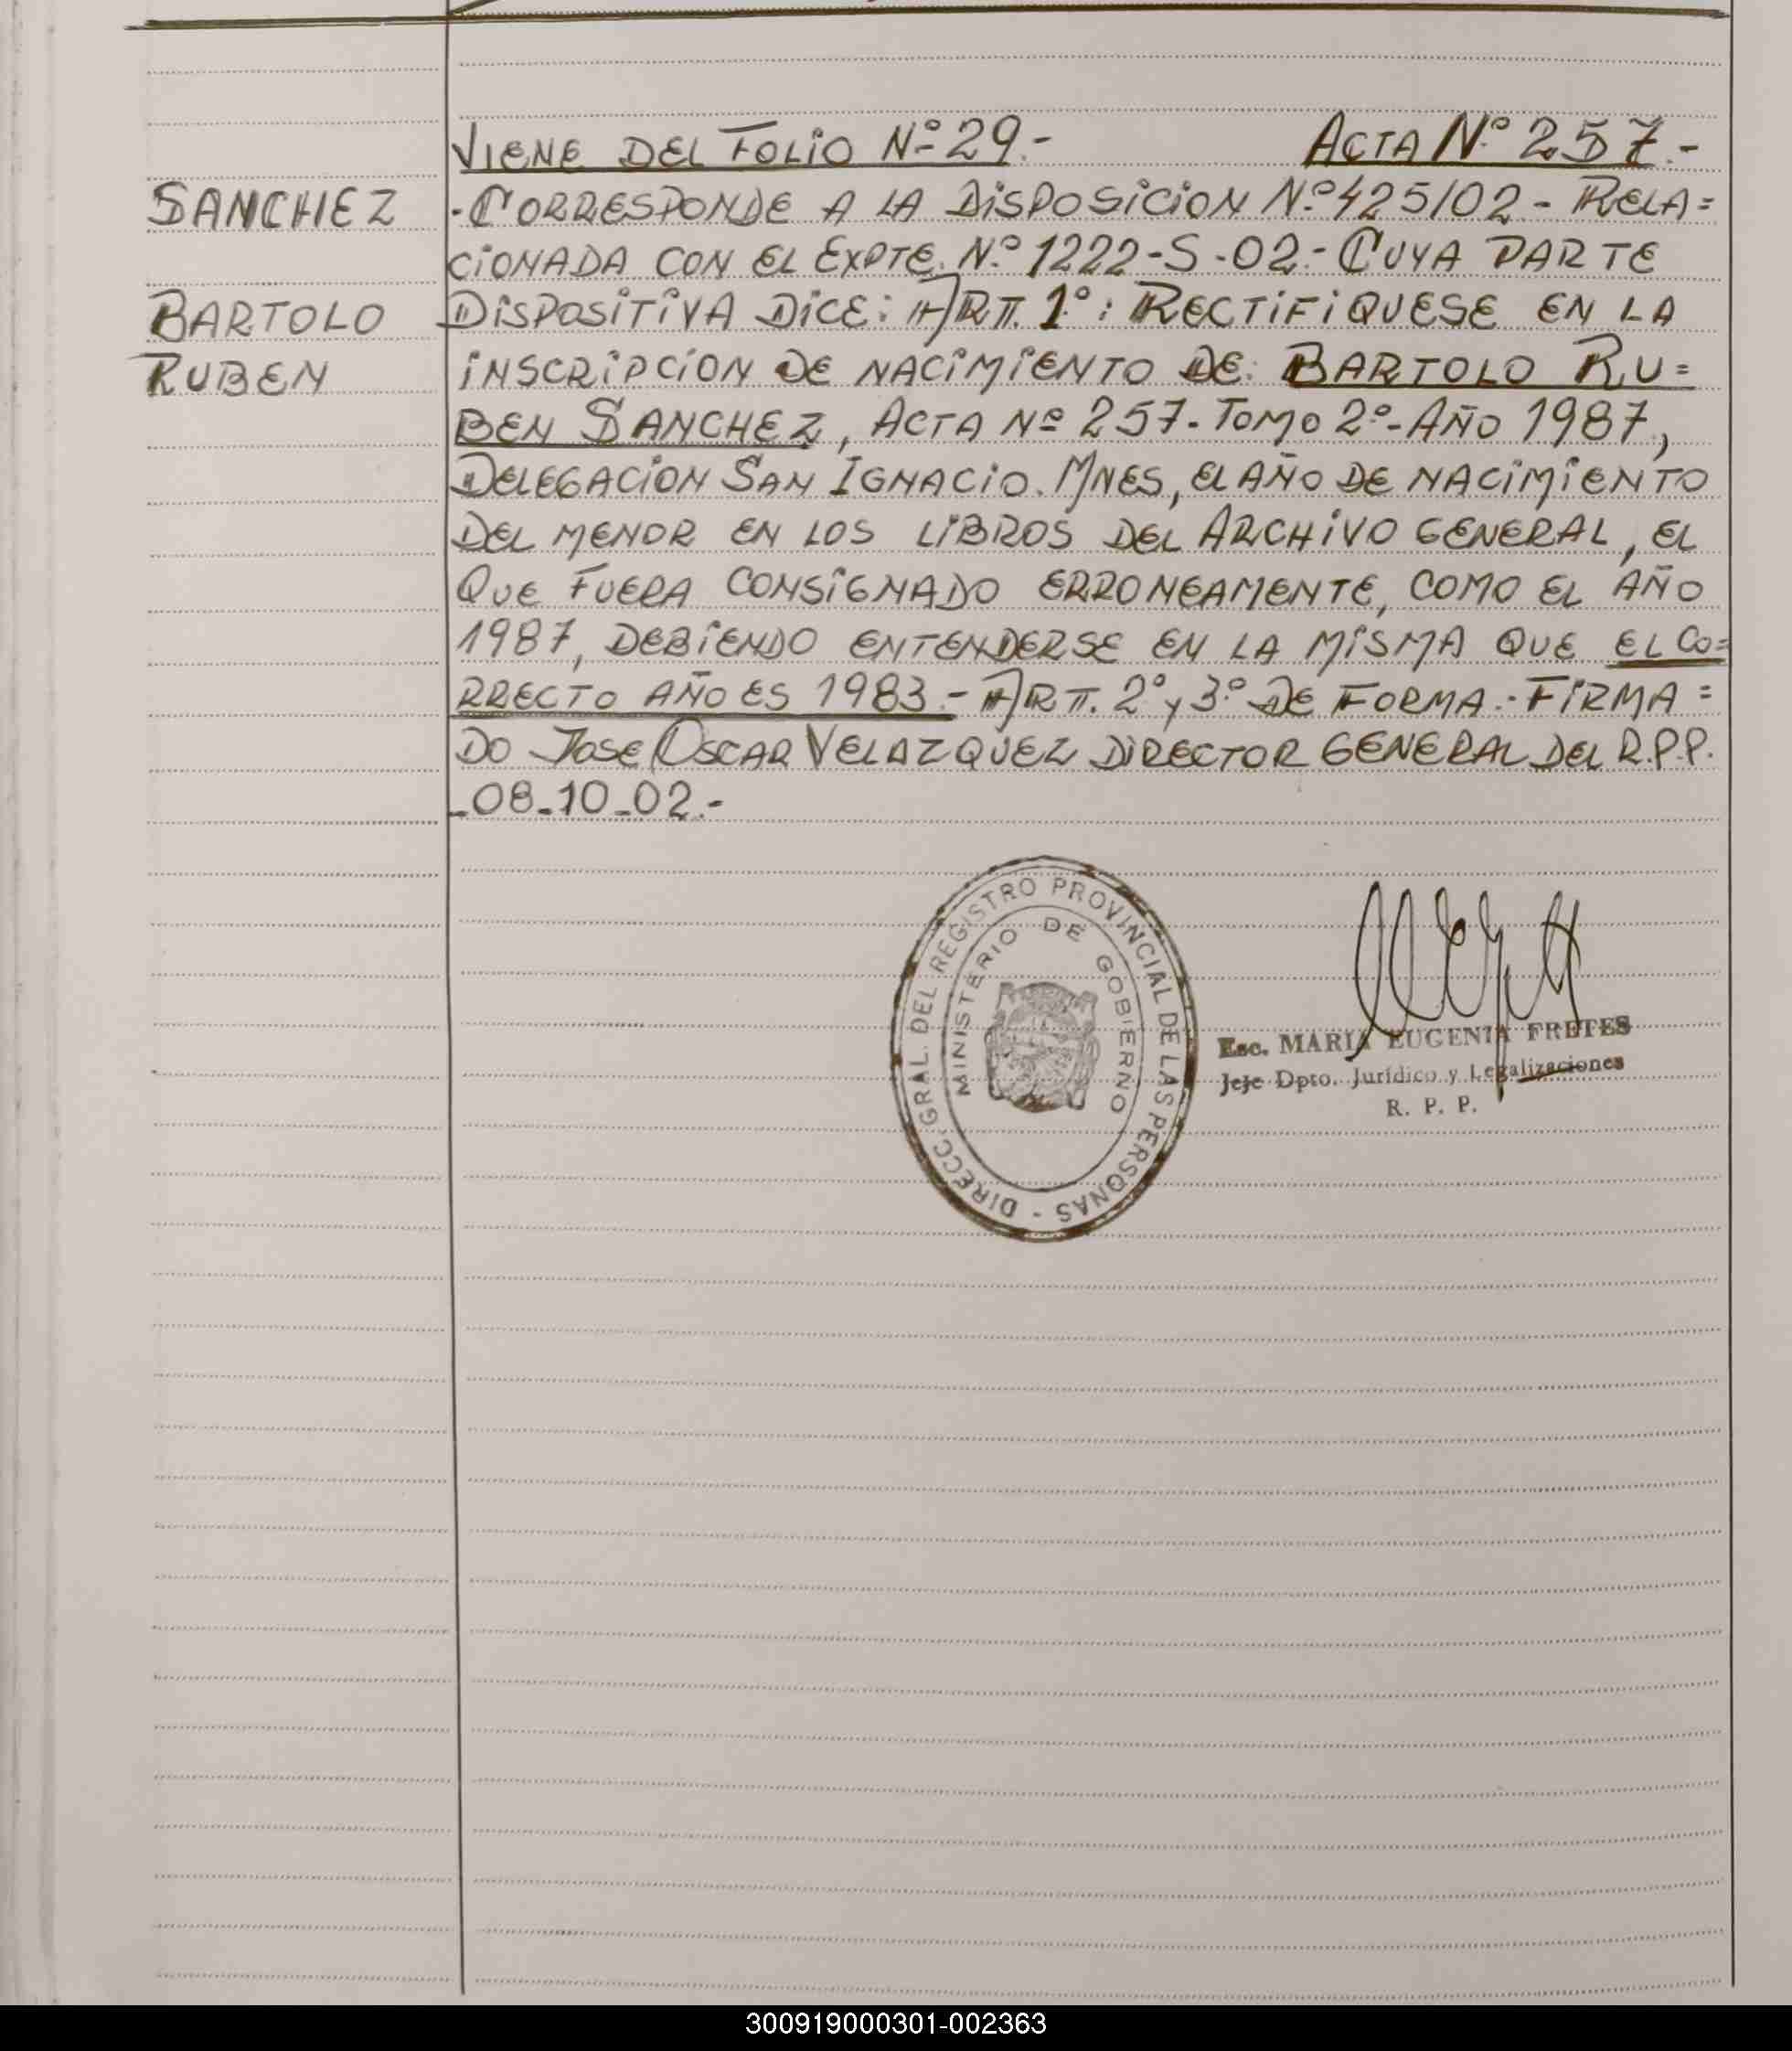 VIENE DEL FOLIO Nº 29.- ACTA Nº 257.-
SANCHEZ
BARTOLO
RUBEN
-CORRESPONDE A LA DISPOSICION Nº 425/02 - RELA=
CIONADA CON EL EXPTE. Nº 1222-S-02.- CUYA PARTE
DISPOSITIVA DICE: ART. 1º: RECTIFIQUESE EN LA
INSCRIPCION DE NACIMIENTO DE: BARTOLO RU=
BEN SANCHEZ, ACTA Nº 257. TOMO 2º-AÑO 1987,
DELEGACION SAN IGNACIO. MNES, EL AÑO DE NACIMIENTO
DEL MENOR EN LOS LIBROS DEL ARCHIVO GENERAL, EL
QUE FUERA CONSIGNADO ERRONEAMENTE, COMO EL AÑO
1987, DEBIENDO ENTENDERSE EN LA MISMA QUE EL CO=
RRECTO AÑO ES 1983.- ART. 2º y 3º DE FORMA.- FIRMA=
DO JOSE OSCAR VELAZQUEZ DIRECTOR GENERAL DEL R.P.P.
-08-10-02.-
DIRECC. GRAL. DEL REGISTRO PROVINCIAL DE LAS PERSONAS -
MINISTERIO DE GOBIERNO
Esc. MARIA EUGENIA FRETES
Jefe Dpto. Jurídico y Legalizaciones
R. P. P.
300919000301-002363